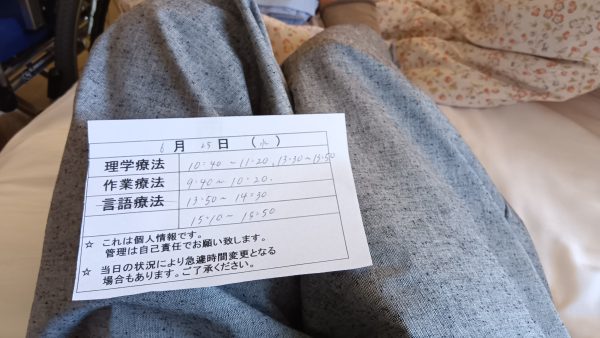 6月25日(水)
理学療法 10:40~11:20, 13:30~13:50
作業療法 9:40~10:20.
言語療法 13:50~14:30
15:10~15:50
☆ これは個人情報です。
管理は自己責任でお願い致します。
☆ 当日の状況により急遽時間変更となる
場合もあります。ご了承ください。